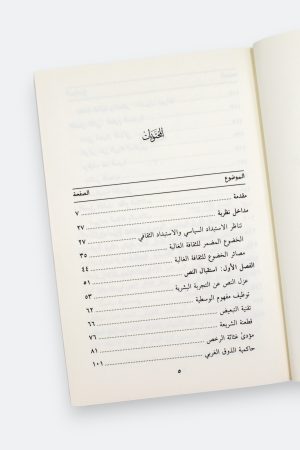 المحتويات
الموضوع الصفحة
مقدمة ٧
مداخل نظرية ٢٧
تناظر الاستبداد السياسي والاستبداد الثقافي ٢٧
الخضوع المضمر للثقافة الغالبة ٣٥
مصائر الخضوع للثقافة الغالبة ٤٤
الفصل الأول: استقبال النص ٥١
عزل النص عن التجربة البشرية ٥٣
توظيف مفهوم الوسطية ٦٢
تقنية التبعيض ٦٦
قطعنة الشريعة ٧٦
مؤدى غثاثة الرخص ٨١
حاكمية الذوق الغربي ١٠١
٥